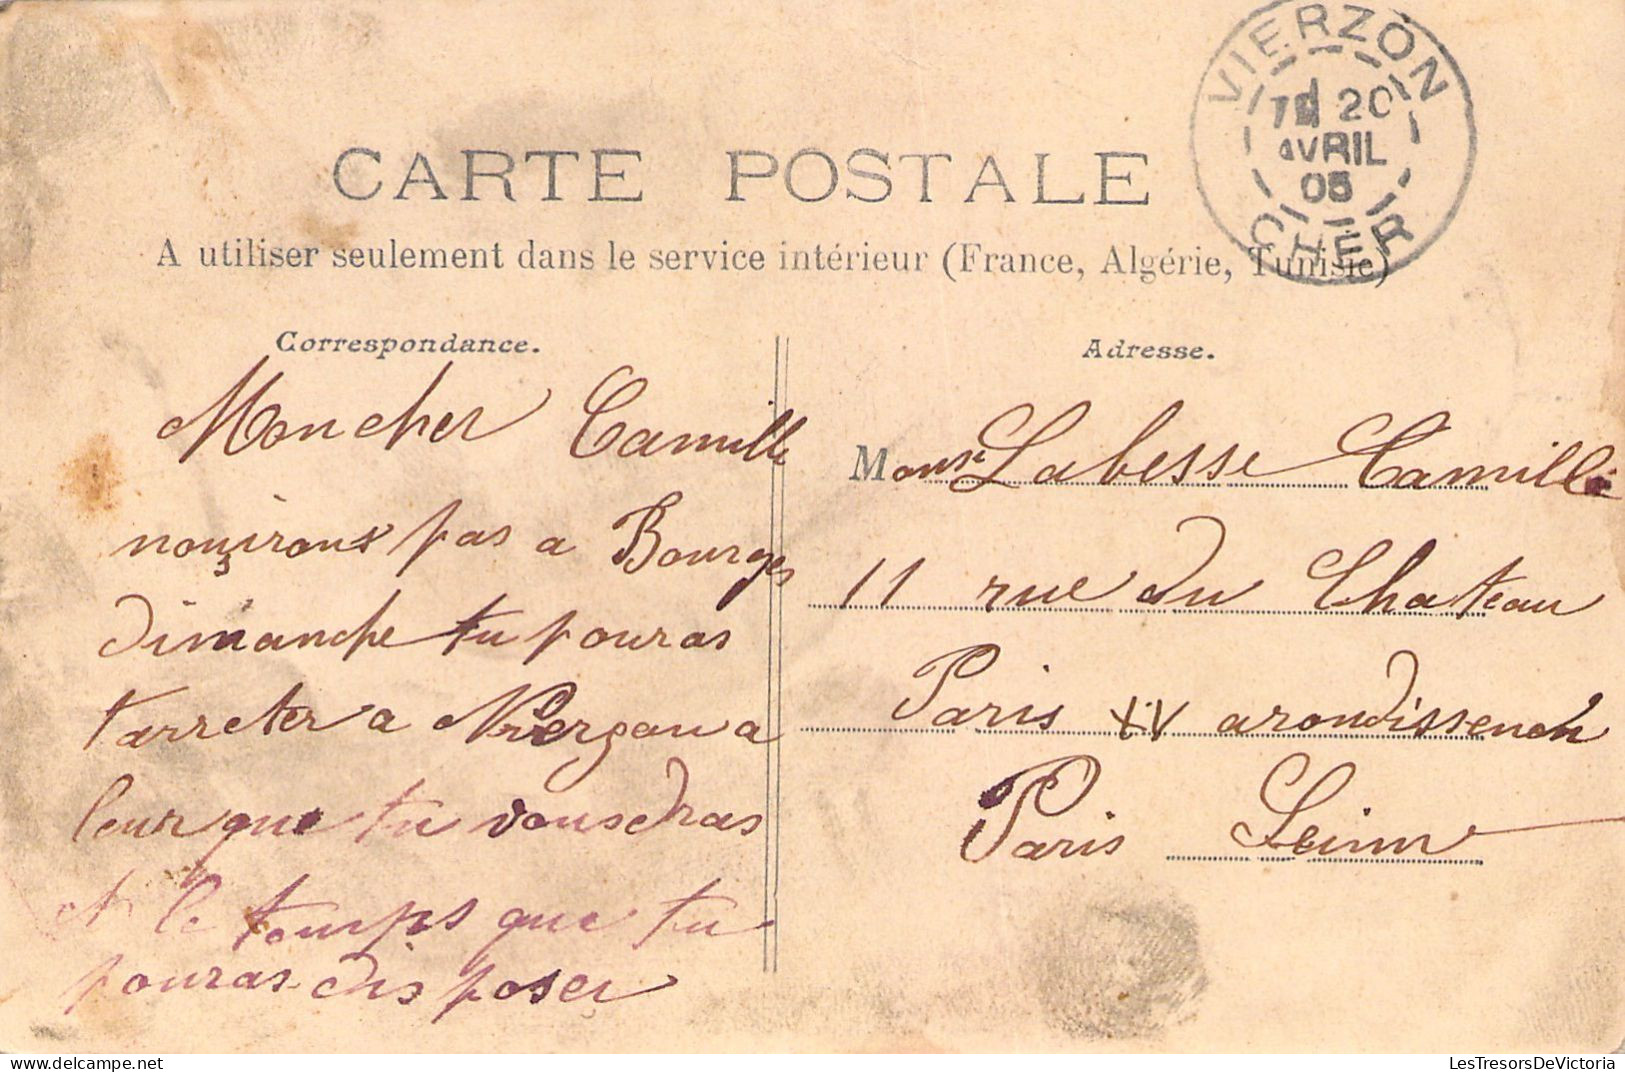 VIERZON
20
AVRIL
CHER
CARTE POSTALE
A utiliser seulement dans le service intérieur (France, Algérie, Tunisie)
Correspondance.
Mon cher Camille
pas a Bourges
dimanche tu pouras
t'arreter a a
leur que tu vousedras
et le temps que tu
pouras disposer
Adresse.
Monsr Labesse Camille
11 rue du Chateau
Paris XIV
Paris Seine
LesTresorsDeVictoria